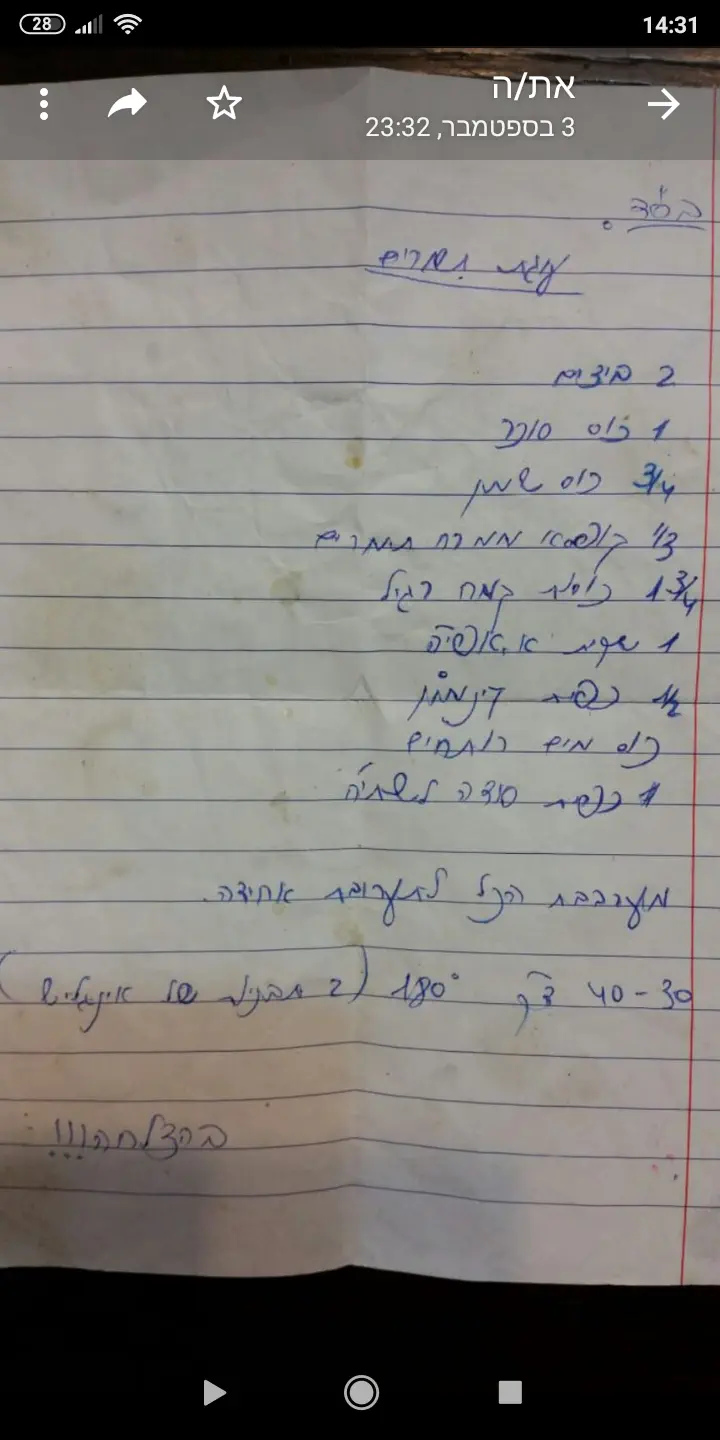 28
14:31
את/ה
3 בספטמבר, 23:32
בס"ד.
עוגת תמרים
2 ביצים
1 כוס סוכר
3/4 כוס שמן
1/3 קופסאי ממרח תמרים
1 3/4 כוסות קמח רגיל
1 שקית א.אפיה
1/2 כפית קינמון
כוס מים רותחים
1 כפית סודה לשתיה
מערבבת הכל לתערובת אחידה.
30-40 דק' 180° (2 תבנית של אינגליש)
בהצלחה!!!